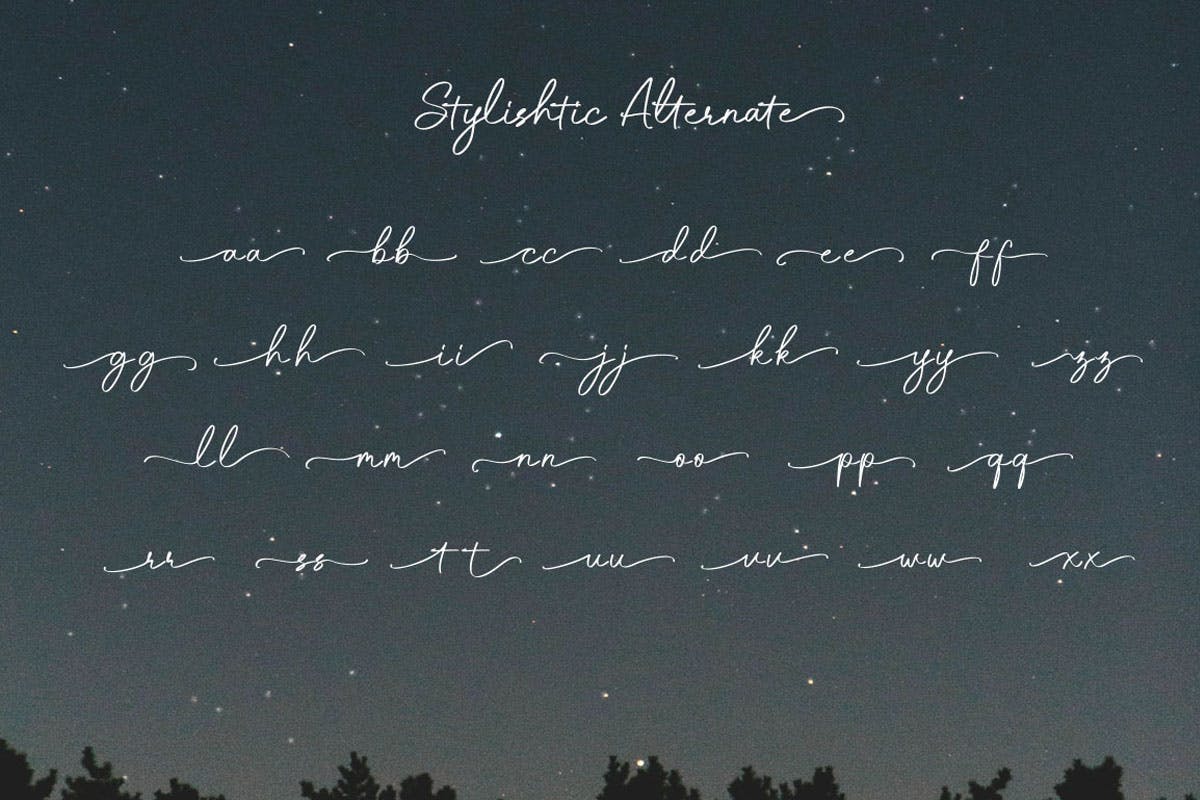 Stylishtic Alternate
aa bb cc dd ee ff
gg hh ii jj kk yy zz
ll mm nn oo pp qq
rr ss tt uu vv ww xx